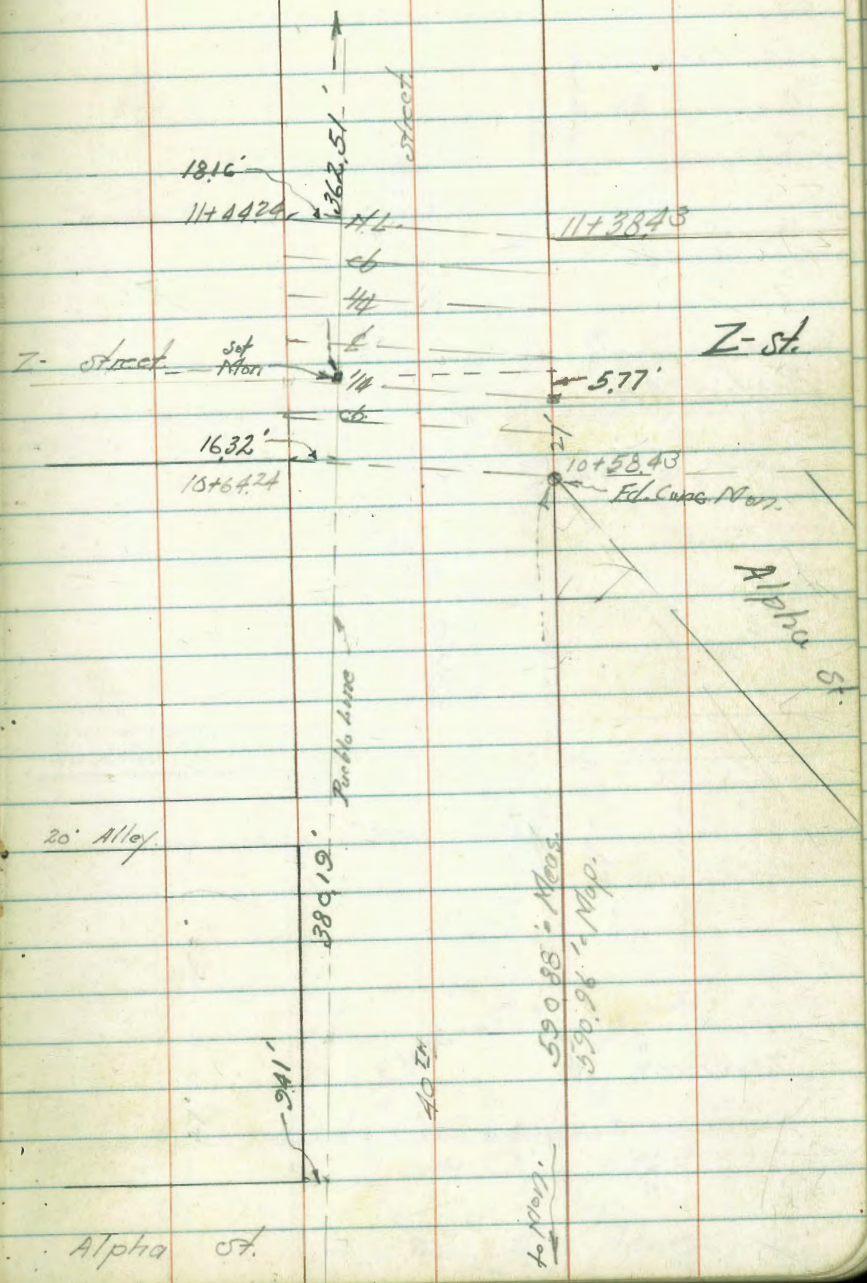 362.51'
Street
18.16'
11+44.24
N.L.
11+38.43
cb
1/4
Z-st.
Z- Street
Set
Mon
1/4
5.77'
cb
27'
16.32'
10+64.24
10+58.43
Fd. Conc. Mon.
Alpha St.
Pueblo Line
20' Alley.
380.19'
590.88' Meas.
590.96' Map.
9.41'
40TH
to Mon.
Alpha St.